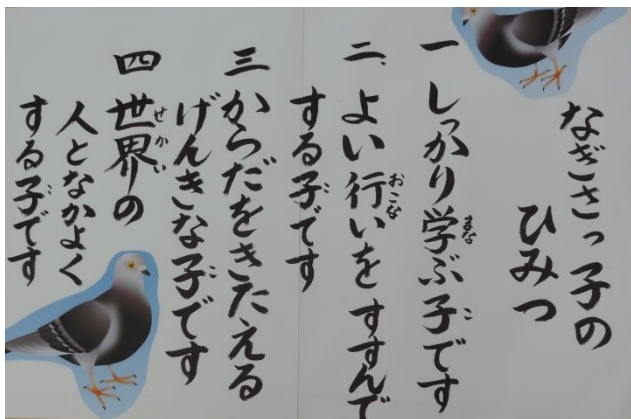 なぎさっ子の
ひみつ
一 しっかり学ぶ子です
二、よい行いをすすんで
する子です
三 からだをきたえる
げんきな子です
四 世界の
人となかよく
する子です